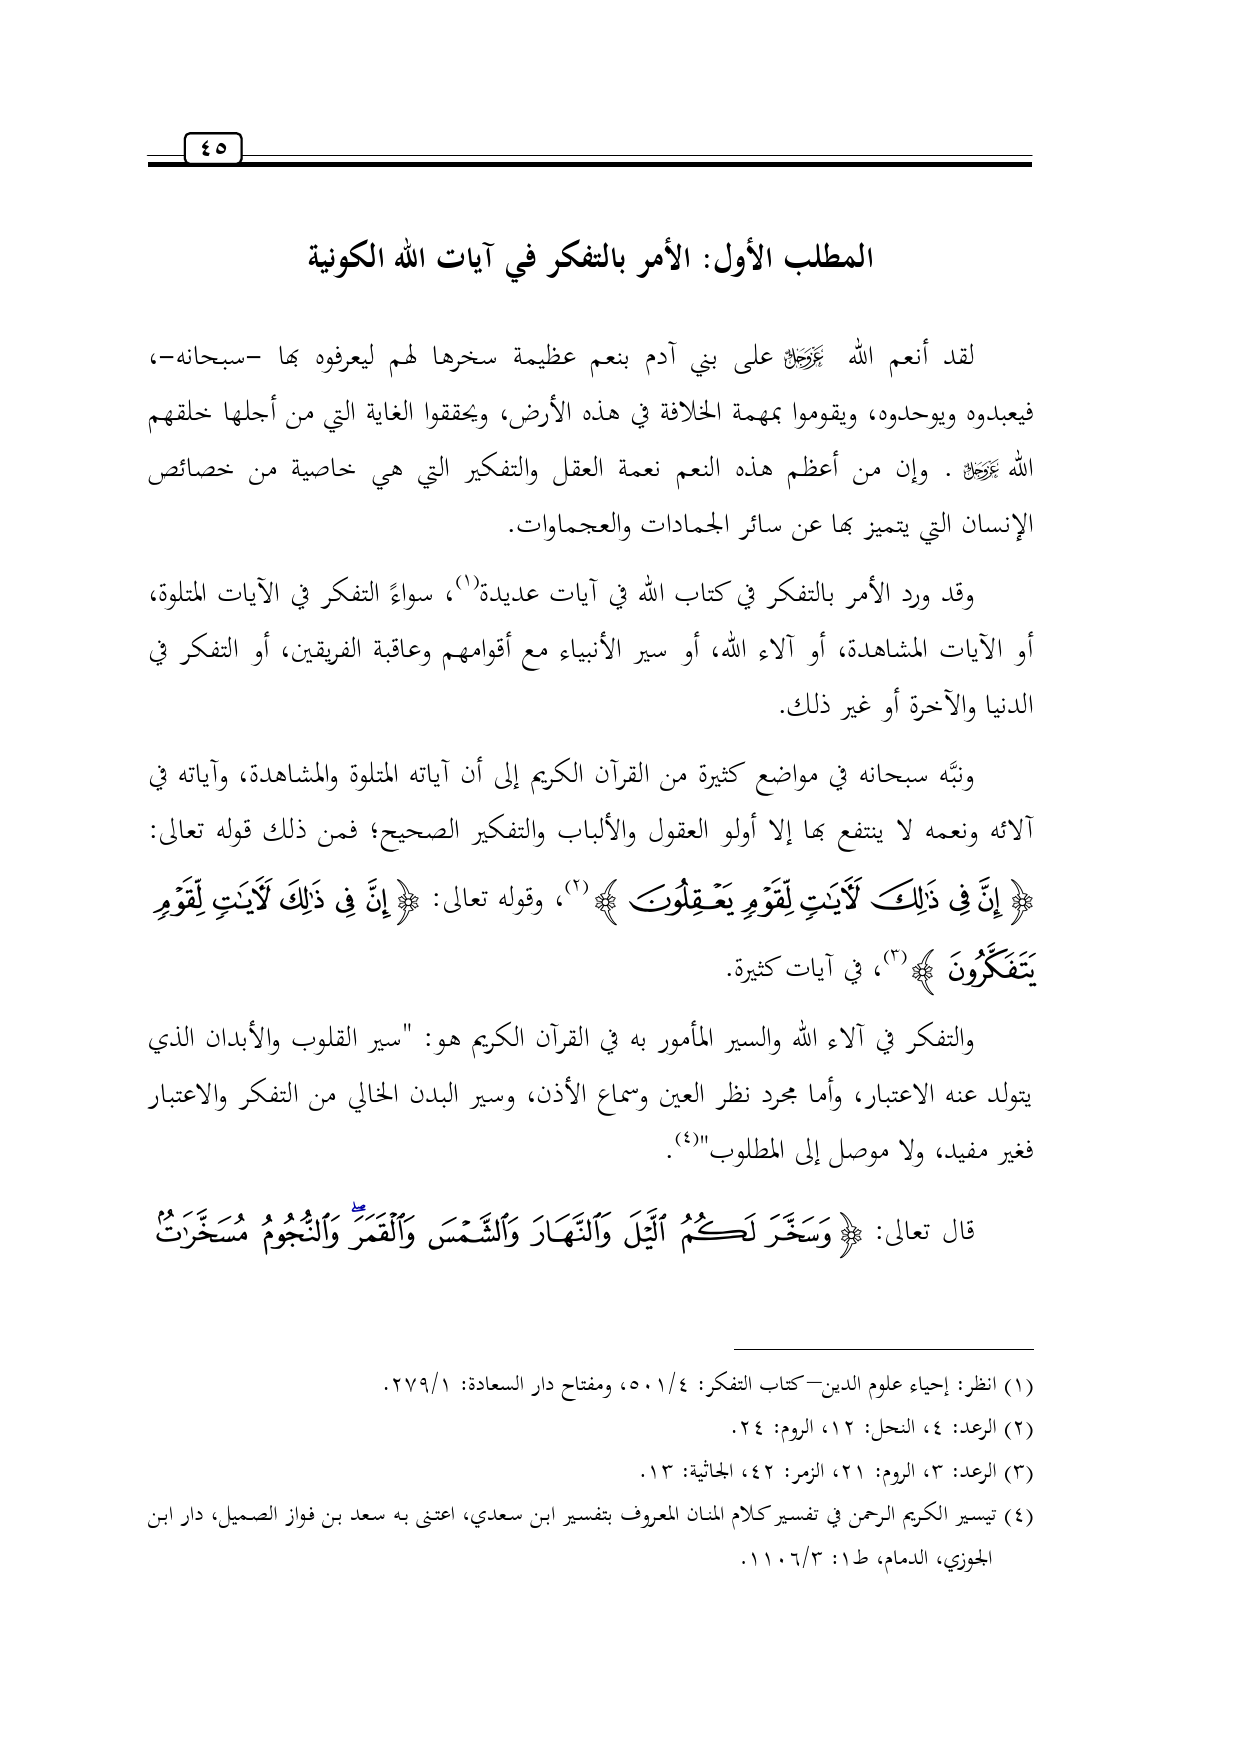 ٤٥
المطلب الأول: الأمر بالتفكر في آيات الله الكونية
لقد أنعم الله عَزَّوَجَلَّ على بني آدم بنعم عظيمة سخرها لهم ليعرفوه بها –سبحانه–،
فيعبدوه ويوحدوه، ويقوموا بمهمة الخلافة في هذه الأرض، ويحققوا الغاية التي من أجلها خلقهم
الله عَزَّوَجَلَّ . وإن من أعظم هذه النعم نعمة العقل والتفكير التي هي خاصية من خصائص
الإنسان التي يتميز بها عن سائر الجمادات والعجماوات.
وقد ورد الأمر بالتفكر في كتاب الله في آيات عديدة(١)، سواءً التفكر في الآيات المتلوة،
أو الآيات المشاهدة، أو آلاء الله، أو سير الأنبياء مع أقوامهم وعاقبة الفريقين، أو التفكر في
الدنيا والآخرة أو غير ذلك.
ونبَّه سبحانه في مواضع كثيرة من القرآن الكريم إلى أن آياته المتلوة والمشاهدة، وآياته في
آلائه ونعمه لا ينتفع بها إلا أولو العقول والألباب والتفكير الصحيح؛ فمن ذلك قوله تعالى:
﴿ إِنَّ فِى ذَٰلِكَ لَأٓيَٰتٖ لِّقَوۡمٖ يَعۡقِلُونَ ﴾(٢)، وقوله تعالى: ﴿ إِنَّ فِى ذَٰلِكَ لَأٓيَٰتٖ لِّقَوۡمٖ
يَتَفَكَّرُونَ ﴾(٣)، في آيات كثيرة.
والتفكر في آلاء الله والسير المأمور به في القرآن الكريم هو: "سير القلوب والأبدان الذي
يتولد عنه الاعتبار، وأما مجرد نظر العين وسماع الأذن، وسير البدن الخالي من التفكر والاعتبار
فغير مفيد، ولا موصل إلى المطلوب"(٤).
قال تعالى: ﴿ وَسَخَّرَ لَكُمُ ٱلَّيۡلَ وَٱلنَّهَارَ وَٱلشَّمۡسَ وَٱلۡقَمَرَۖ وَٱلنُّجُومُ مُسَخَّرَٰتُۢ
(١) انظر: إحياء علوم الدين–كتاب التفكر: ٥٠١/٤، ومفتاح دار السعادة: ٢٧٩/١.
(٢) الرعد: ٤، النحل: ١٢، الروم: ٢٤.
(٣) الرعد: ٣، الروم: ٢١، الزمر: ٤٢، الجاثية: ١٣.
(٤) تيسير الكريم الرحمن في تفسير كلام المنان المعروف بتفسير ابن سعدي، اعتنى به سعد بن فواز الصميل، دار ابن
الجوزي، الدمام، ط١: ١١٠٦/٣.